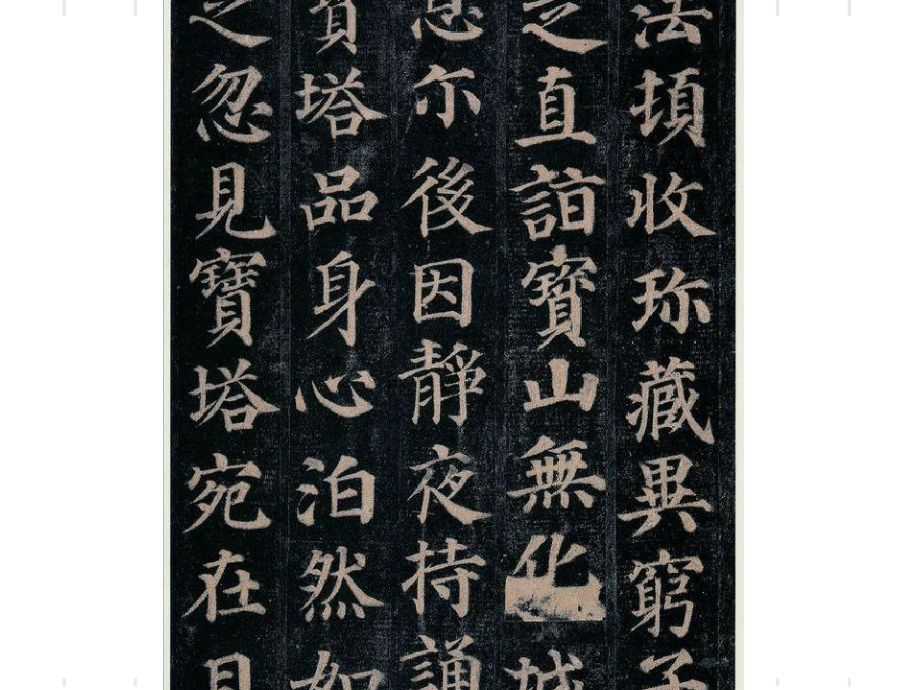 法頓收珎藏異窮子
走直詣寶山無化城
息尒後因靜夜持誦
寶塔品身心泊然如
定忽見寶塔宛在目